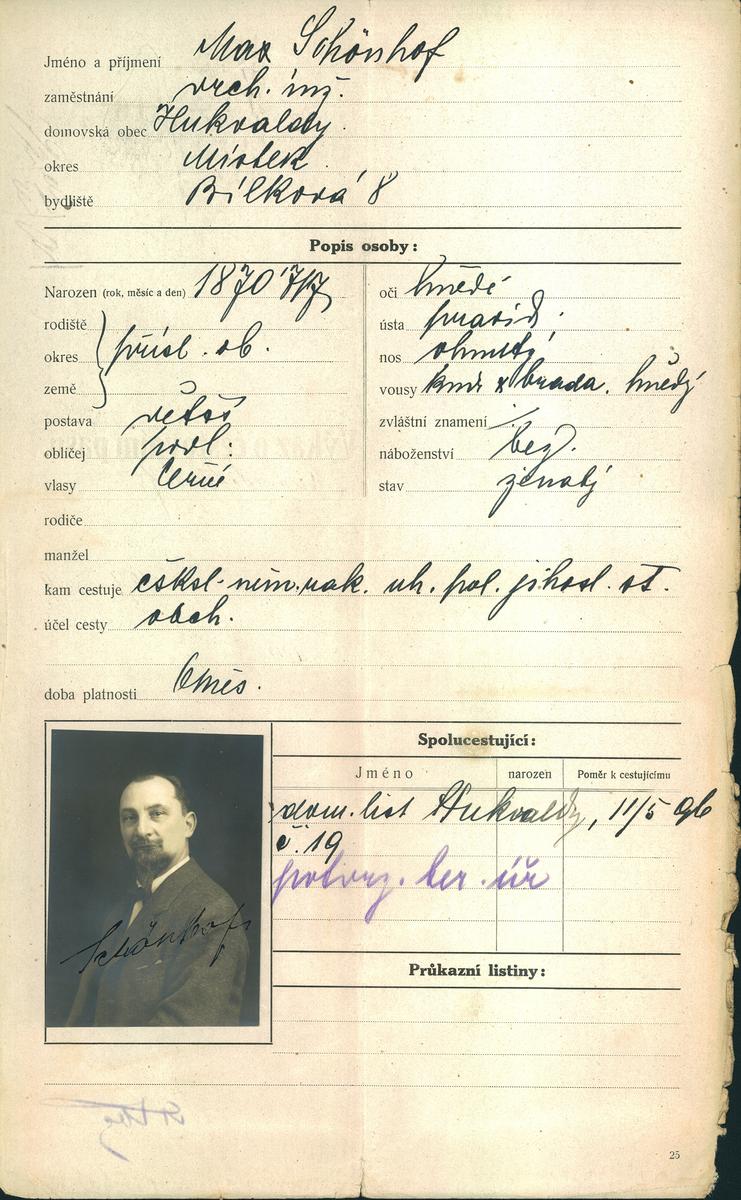 Jméno a příjmení Max Schönhof
zaměstnání vrch. inž.
domovská obec Hukvaldy
okres Místek
bydliště Bílková 8
Popis osoby:
Narozen (rok, měsíc a den) 1870 7/7
oči hnědé
rodiště
ústa pravid.
okres přísl. ob.
nos ohnutý
země
vousy knír x brada. hnědý
postava větší
zvláštní znamení
obličej podl.
náboženství bez.
vlasy černé
stav ženatý
rodiče
manžel
kam cestuje čsksl. něm. rak. uh. pol. jihosl. st.
účel cesty obch.
doba platnosti 6 měs.
Spolucestující:
Jméno narozen Poměr k cestujícímu
dom. list Hukvaldy, 11/5 96
č. 19
potvrz. ber. úř
Schönhof
Průkazní listiny:
25